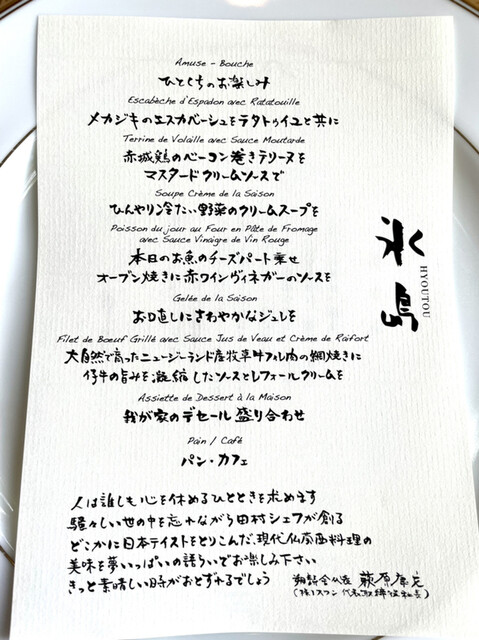 Amuse - Bouche
ひとくちのお楽しみ
Escabèche d'Espadon avec Ratatouille
メカジキのエスカベーシュをラタトゥイユと共に
Terrine de Volaille avec Sauce Moutarde
赤城鶏のベーコン巻きテリーヌを
マスタードクリームソースで
Soupe Crème de la Saison
ひんやり冷たい野菜のクリームスープを
Poisson du jour au Four en Pâte de Fromage
avec Sauce Vinaigre de Vin Rouge
本日のお魚のチーズパート乗せ
オーブン焼きに赤ワインヴィネガーのソースを
Gelée de la Saison
お口直しにさわやかなジュレを
Filet de Boeuf Grillé avec Sauce Jus de Veau et Crème de Raifort
大自然で育ったニュージーランド産牧草牛フィレ肉の網焼きに
仔牛の旨みを凝縮したソースとレフォールクリームを
Assiette de Dessert à la Maison
我が家のデセール盛り合わせ
Pain / Café
パン・カフェ
氷島
HYOUTOU
人は誰しも心を休めるひとときを求めます
騒々しい世の中を忘れながら田村シェフが創る
どこかに日本テイストをとりこんだ、現代仏蘭西料理の
美味を夢いっぱいの語らいでお楽しみ下さい
きっと素晴しい時がおとずれるでしょう
萩原康